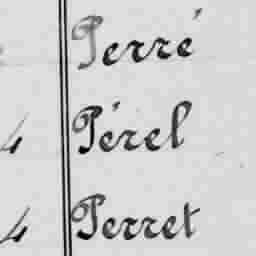 Perré
4 Pérel
4 Perret